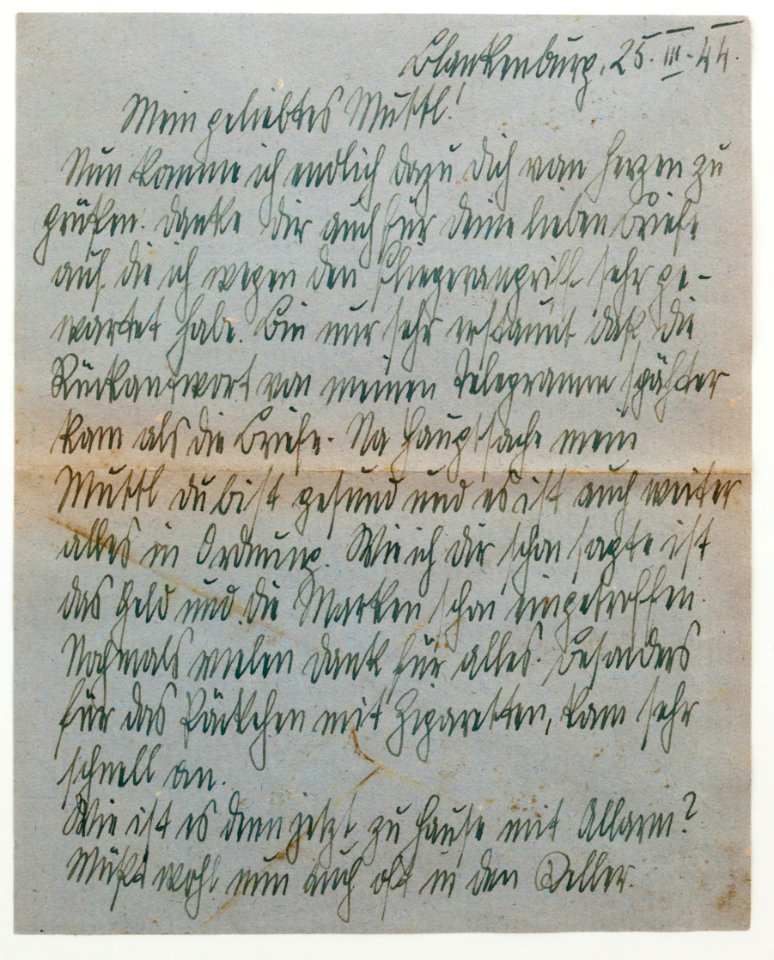 Blankenburg, 25. III. 44.
Mein geliebtes Muttl!
Nun komme ich endlich dazu dich von Herzen zu
grüßen. Danke Dir auch für deine lieben Briefe
auf die ich wegen den Fliegerangriff sehr ge-
wartet habe. Bin nur sehr erstaunt daß die
Rückantwort von meinen Telegramm spähter
kam als die Briefe. Na Hauptsache mein
Muttl du bist gesund und es ist auch weiter
alles in Ordnung. Wie ich dir schon sagte ist
das Geld und die Marken schon eingetroffen.
Nochmals vielen Dank für alles. Besonders
für das Päckchen mit Zigaretten, kam sehr
schnell an.
Wie ist es denn jetzt zu Hause mit Allarm?
Müßt wohl nun auch oft in den Keller.